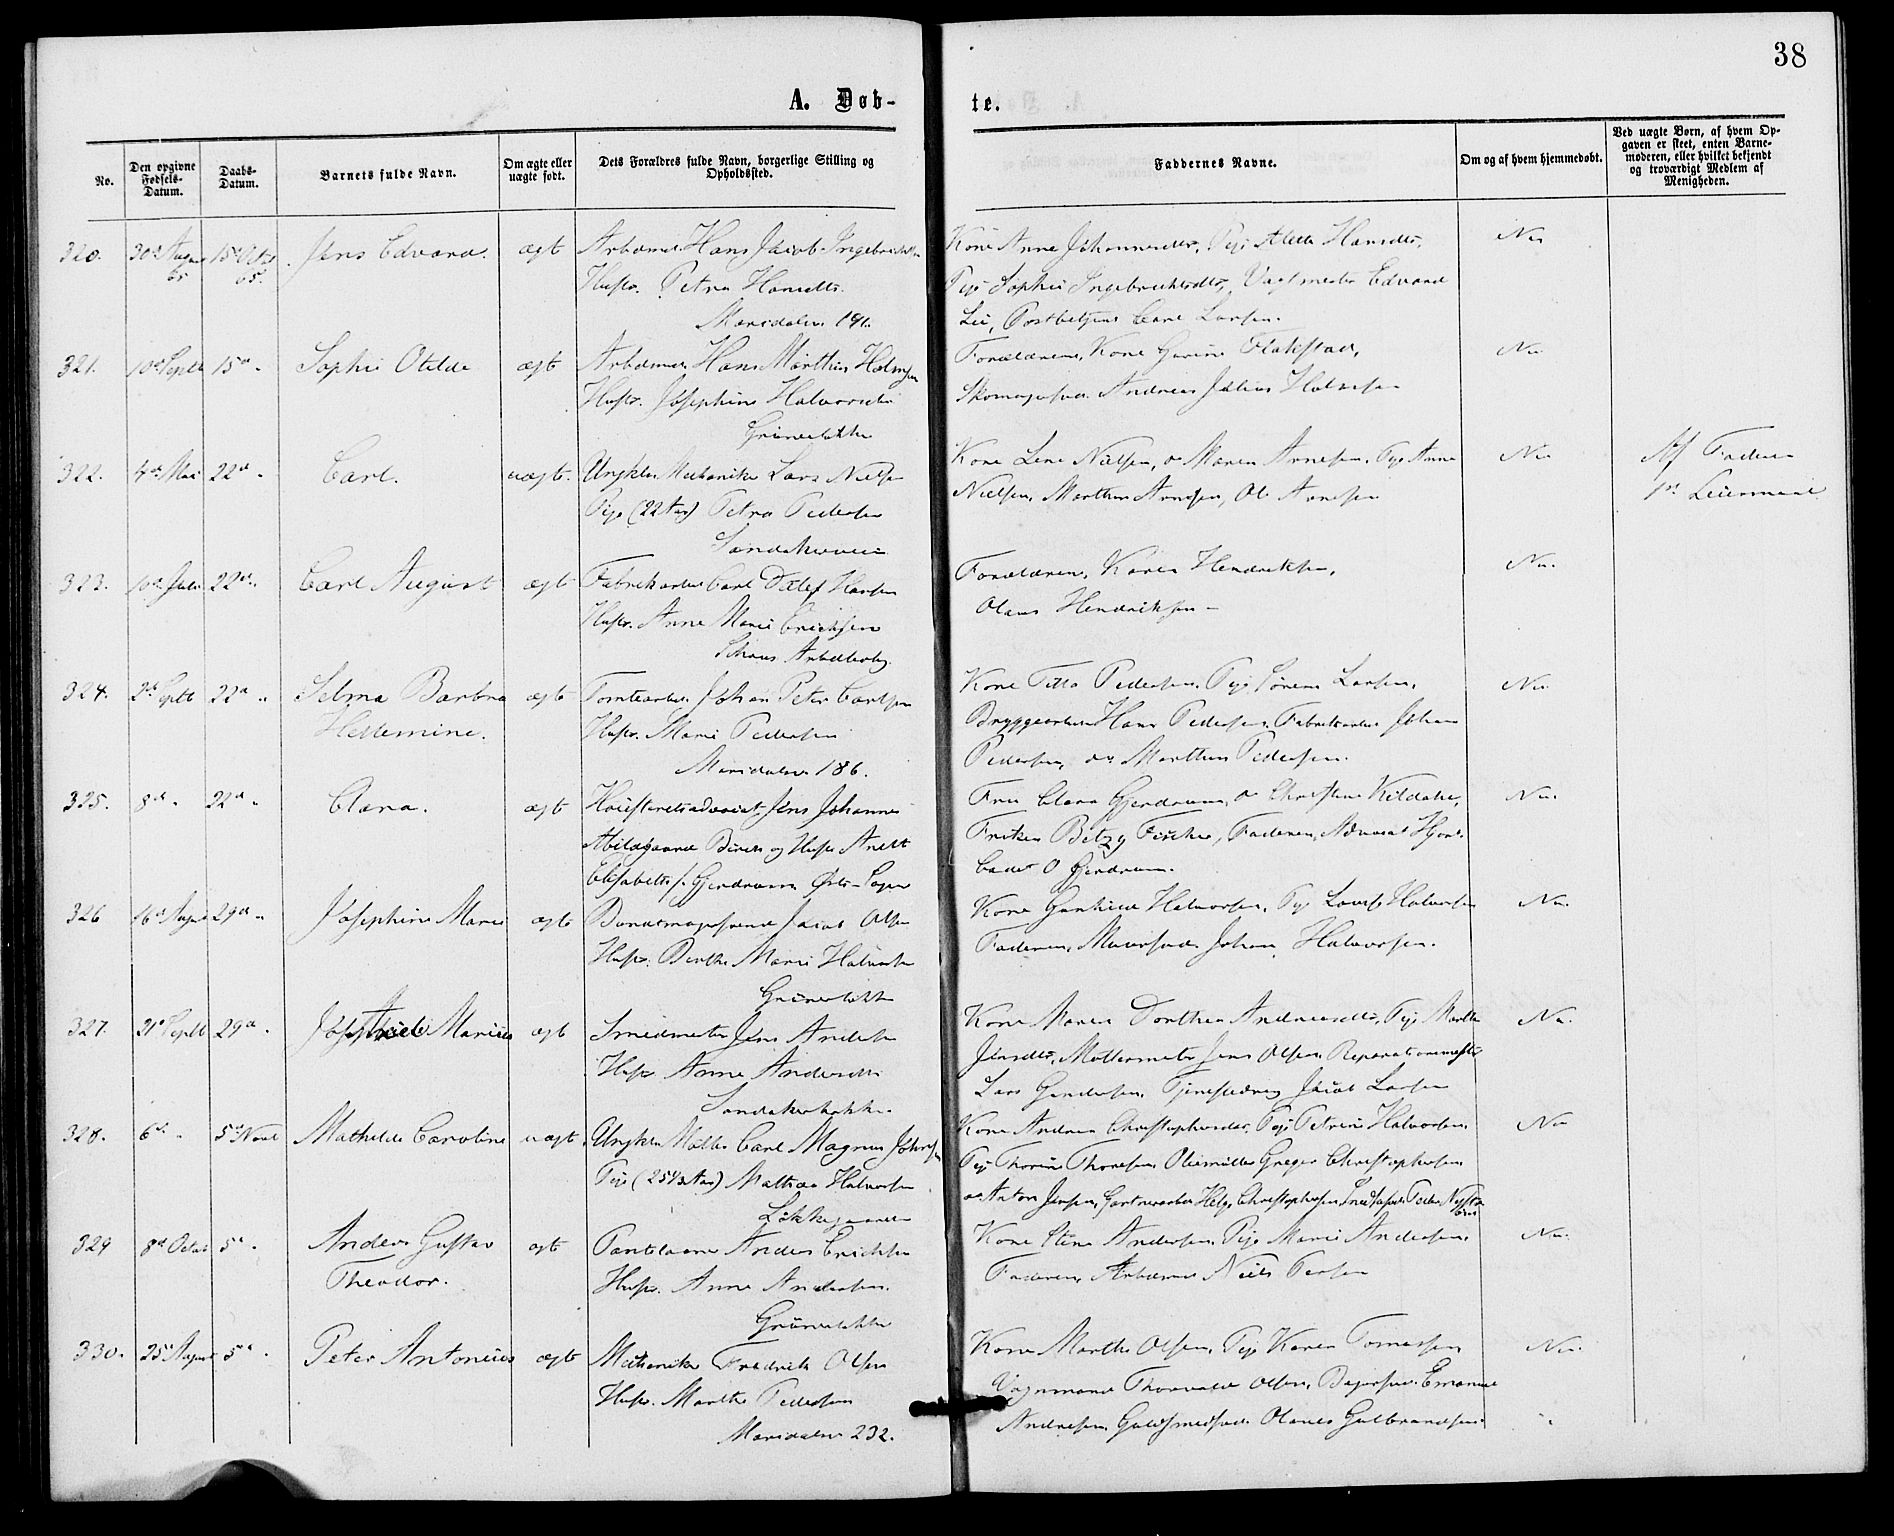 38
A. Døb-
te.
No.
Den opgivne Fødsels-Datum.
Daabs-Datum.
Barnets fulde Navn.
Om ægte eller uægte født.
Dets Forældres fulde Navn, borgerlige Stilling og Opholdssted.
Faddernes Navne.
Om og af hvem hjemmedøbt.
Ved uægte Børn, af hvem Opgaven er skeet, enten Barnemoderen, eller hvilket bekjendt og troværdigt Medlem af Menigheden.
320. 30d August 65 15d Octbr 65. Jens Edvard. ægt Arbdmd Hans Jacob Ingebrichtsen
Hustr. Petra Hansdtr.
Maridalsv. 191.
Kone Anne Johannesdtr, Pige Alette Hansdtr,
Pige Sophie Ingebrichtsdtr, Vagtmester Edvard
Lie, Postbetjent Carl Larsen.
Nei
321. 10d Septb 15d " Sophie Otilde ægt Arbdmd Hans Marthin Halvorsen
Hustr. Josephine Halvorsdtr
Grünerløkke
Forældrene, Kone Gurine Flakstad,
Skomagersvd. Andreas Julius Halvorsen
Nei
322. 4d Mai 22d " Carl. uægt. Ungkle Mechaniker Lars Nielsen
Pige (22 Aar) Petra Pedersen
Sandakerveien
Kone Lene Nielsen, do Maren Arnesen, Pige Anna
Nielsen, Marthin Arnesen, Ole Arnesen
Nei
Af Faderen
1st Leiermaal
323. 10d Juli 22d " Carl August ægt Fabrikarbd Carl Detlef Hansen
Hustr. Anne Marie Erichsen
Schous Arbeiderbolig.
Forældrene, Karen Hendriksen,
Olaus Hendriksen –
Nei.
324. 2d Septb 22d " Selma Barbra ægt Tomtearbd. Johan Peter Carlsen
Hellemine.
Hustr. Marie Pedersen
Maridalsv. 186.
Kone Petra Pedersen, Pige Sørene Larsen,
Bryggearbd Hans Pedersen, Fabrikarbd Johan
Pedersen, do Marthin Pedersen.
Nei
325. 8d " 22d " Clara. ægt Høiesteretsadvocat Jens Johannes
Abildgaard Bürch og Hustr Anette
Elisabeth f. Gjerdrum Øvre-Foss
Fru Clara Gjerdrum, do Christine Kildahl,
Frøken Betzy Fischer, Faderen, Advocat Hjort,
Cadet O Gjerdrum.
Nei.
326 16d August 29d " Josephine Marie ægt Bundtmagersvend Jacob Olsen
Hustr. Berthe Marie Halvorsen
Grünerløkke
Kone Gunhild Halvorsen, Pige Lovise Halvorsen
Faderen, Muursvd. Johan Halvorsen.
Nei.
327. 21d Septb 29d " Marius ægt Smedmester Jens Andersen
Hustr Anne Andersdtr
Sandakerløkke.
Kone Maren Dorthea Andreasdtr, Pige Marthe
Jensdtr, Møllermester Jens Olsen, Reparationsmester
Lars Gundersen, Tjenestedreng Jacob Larsen
Nei.
328. 6d " 5d Novb Mathilde Caroline uægt. Ungkle Maler Carl Magnus Johnsen
Pige (25½ Aar) Mathea Halvorsen
Løkkegaarden
Kone Andrea Christophersdtr, Pige Petrine Halvorsen,
Pige Thorine Thoresen, Oliemøller Greger Christophersen
do Anton Jensen, Gartnerarbd Helge Christophersen
Nei
329 8d Octbr 5d " Anders Gustav ægt Pantelaaner Anders Erichsen
Theodor.
Hustr. Anne Andersen.
Grünerløkke
Kone Stina Andersen, Pige Marie Andersen,
Faderen, Arbdmd Niels Persen
Nei.
330. 25d August 5d " Peter Antonius ægt Mechaniker Fredrik Olsen
Hustr. Marthe Pedersen
Maridalsv 232.
Kone Marthe Olsen, Pige Karen Tomassen
Vognmand Thorvald Olsen, Bagersvd. Emanuel
Andresen, Guldsmedsvd. Olaves Gulbrandsen.
Nei.